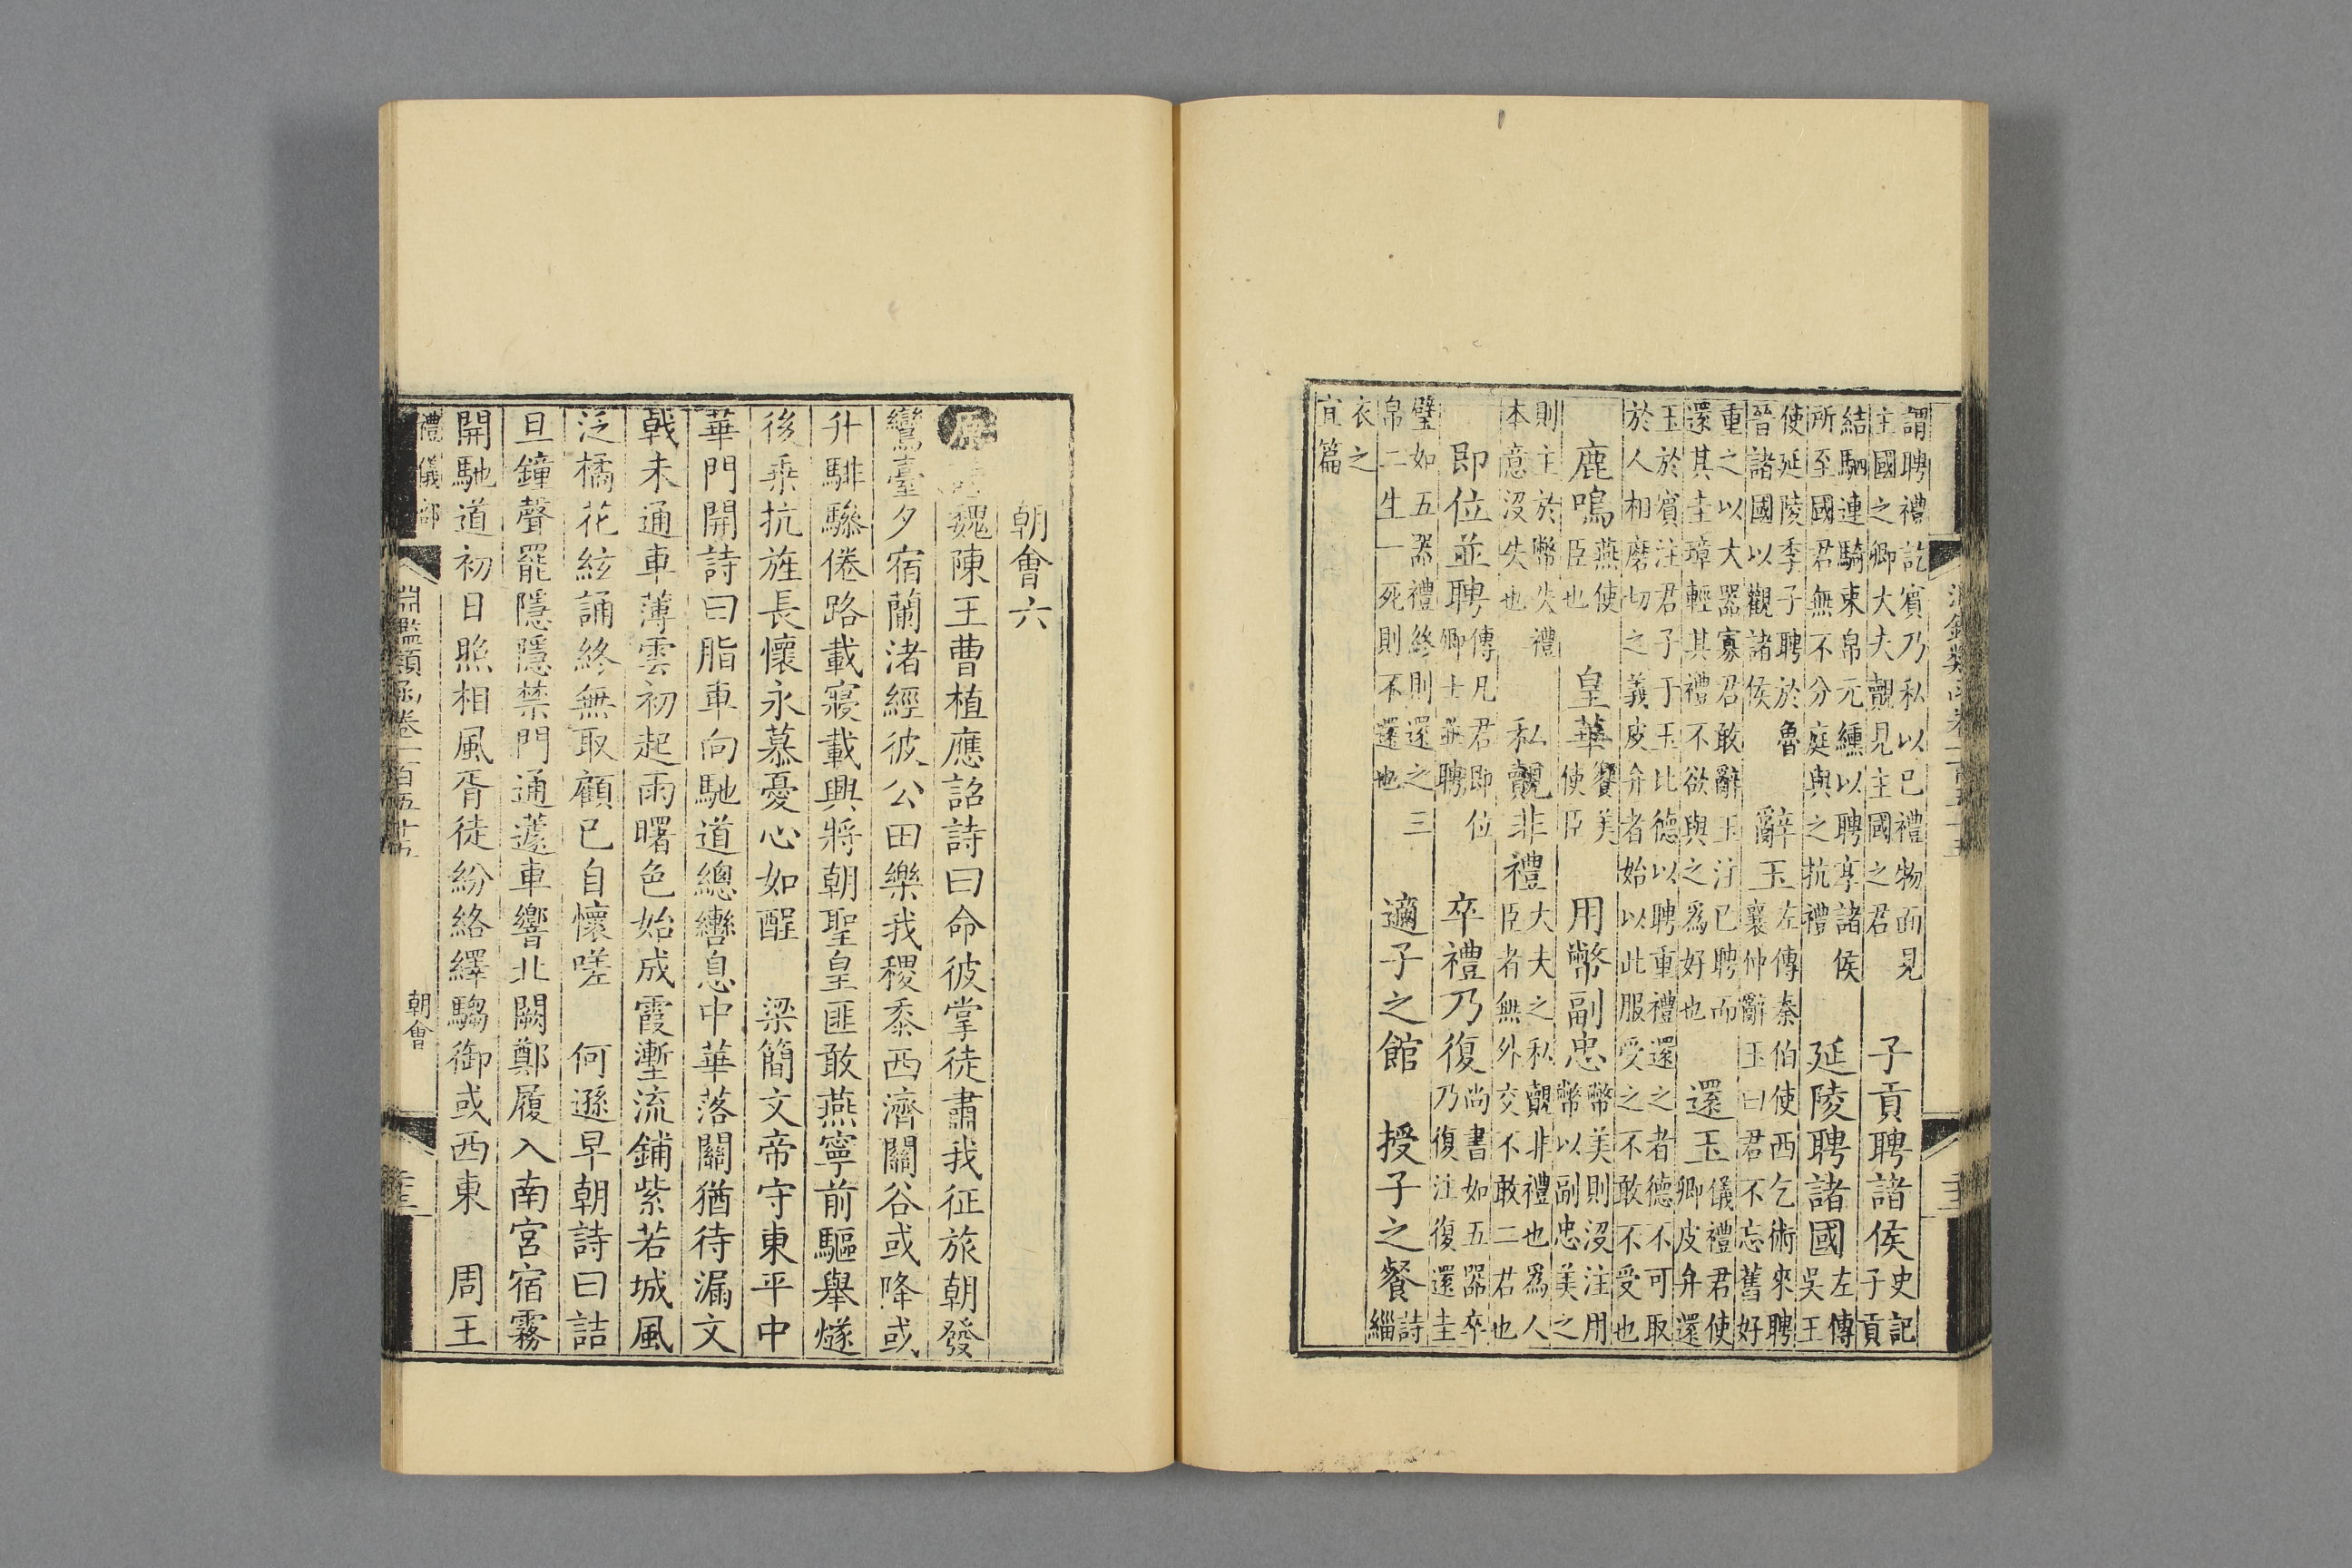 謂聘禮訖賓乃私以己禮物而見
主國之卿大夫覿見主國之君
子貢聘諸侯
史記
子貢
結駟連騎束帛元纁以聘享諸侯
所至國君無不分庭與之抗禮
延陵聘諸國
左傳
吳王
使延陵季子聘於魯
晉諸國以觀諸侯
辭玉
左傳秦伯使西乞術來聘
襄仲辭玉曰君不忘舊好
重之以大器寡君敢辭玉注已聘而
還其圭璋輕其禮不欲與之爲好也
還玉
儀禮君使
卿皮弁還
玉於賓注君子于玉比德以聘重禮還之者德不可取
於人相磨切之義皮弁者始以此服受之不敢不受也
鹿鳴
燕使
臣也
皇華
餐美
使臣
用幣副忠
幣美則沒注用
幣以副忠美之
則主於幣失禮
本意沒失也
私覿非禮
大夫之私覿非禮也爲人
臣者無外交不敢二君也
即位並聘
傳凡君即位
卿士並聘
卒禮乃復
尚書如五器卒
乃復注復還圭
璧如五器禮終則還之三
帛二生一死則不還也
適子之館　授子之餐
詩
緇
衣之
宜篇
朝會六
魏陳王曹植應詔詩曰命彼掌徒肅我征旅朝發
鸞臺夕宿蘭渚經彼公田樂我稷黍西濟關谷或降或
升騑驂倦路載寢載興將朝聖皇匪敢燕寧前驅舉燧
後乘抗旌長懷永慕憂心如酲　梁簡文帝守東平中
華門開詩曰脂車向馳道總轡息中華落關猶待漏文
戟未通車薄雲初起雨曙色始成霞漸流鋪紫若城風
泛橘花絃誦終無取顧已自懷嗟　何遜早朝詩曰詰
旦鐘聲罷隱隱禁門通蘧車響北闕鄭履入南宮宿霧
開馳道初日照相風胥徒紛絡繹騶御或西東　周王
禮儀部
淵鑑類函卷一百五十五
朝會